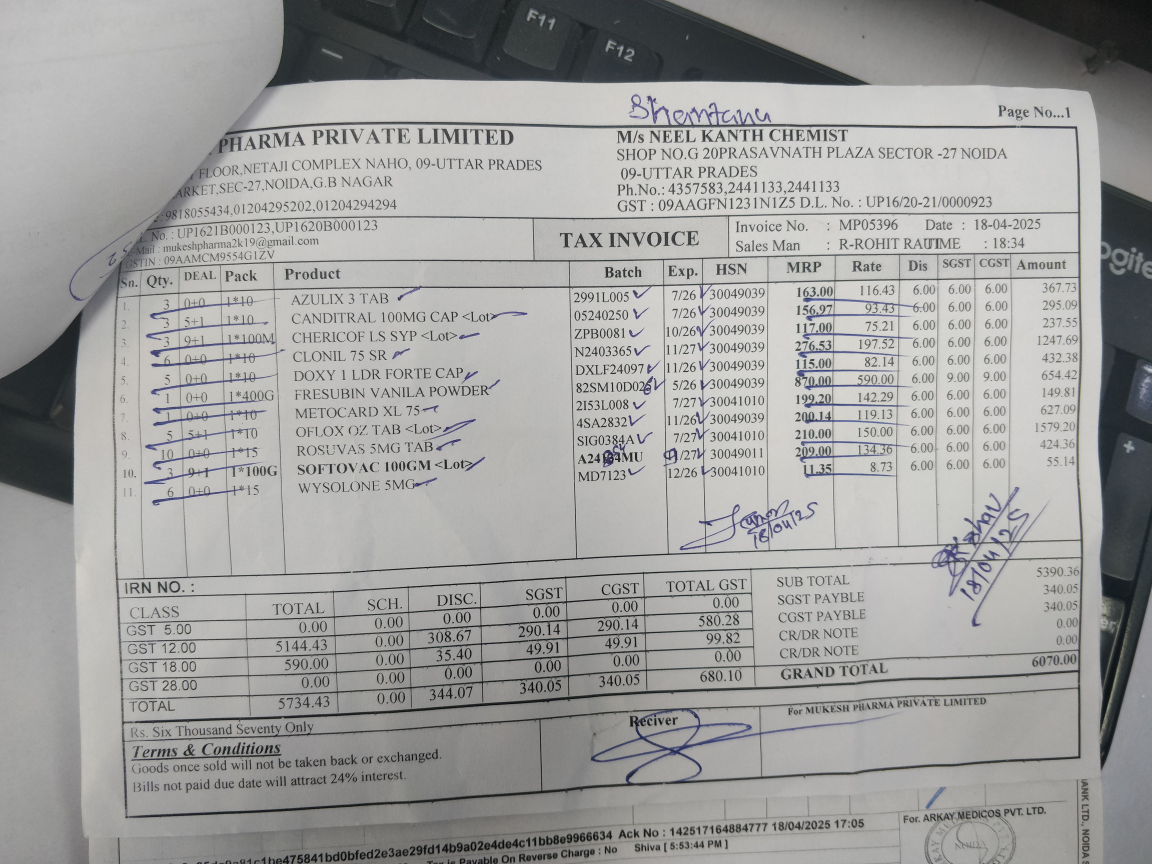 F11
F12
Page No...1
PHARMA PRIVATE LIMITED
FLOOR,NETAJI COMPLEX NAHO, 09-UTTAR PRADES
ARKET,SEC-27,NOIDA,G.B NAGAR
9818055434,01204295202,01204294294
L. No. : UP1621B000123,UP1620B000123
Mail : mukeshpharma2k19@gmail.com
GSTIN : 09AAMCM9554G1ZV
M/s NEEL KANTH CHEMIST
SHOP NO.G 20PRASAVNATH PLAZA SECTOR -27 NOIDA
09-UTTAR PRADES
Ph.No.: 4357583,2441133,2441133
GST : 09AAGFN1231N1Z5 D.L. No. : UP16/20-21/0000923
TAX INVOICE
Invoice No. : MP05396 Date : 18-04-2025
Sales Man : R-ROHIT RAUTIME : 18:34
Sn. Qty. DEAL Pack Product Batch Exp. HSN MRP Rate Dis SGST CGST Amount
1. 3 0+0 1*10 AZULIX 3 TAB 2991L005 7/26 30049039 163.00 116.43 6.00 6.00 6.00 367.73
2. 3 5+1 1*10 CANDITRAL 100MG CAP <Lot> 05240250 7/26 30049039 156.97 93.43 6.00 6.00 6.00 295.09
3. 3 9+1 1*100M CHERICOF LS SYP <Lot> ZPB0081 10/26 30049039 117.00 75.21 6.00 6.00 6.00 237.55
4. 6 0+0 1*10 CLONIL 75 SR N2403365 11/27 30049039 276.53 197.52 6.00 6.00 6.00 1247.69
5. 5 0+0 1*10 DOXY 1 LDR FORTE CAP DXLF24097 11/26 30049039 115.00 82.14 6.00 6.00 6.00 432.38
6. 1 0+0 1*400G FRESUBIN VANILA POWDER 82SM10D02 5/26 30049039 870.00 590.00 6.00 9.00 9.00 654.42
7. 1 0+0 1*10 METOCARD XL 75 2I53L008 7/27 30041010 199.20 142.29 6.00 6.00 6.00 149.81
8. 5 5+1 1*10 OFLOX OZ TAB <Lot> 4SA2832 11/26 30049039 200.14 119.13 6.00 6.00 6.00 627.09
9. 10 0+0 1*15 ROSUVAS 5MG TAB SIG0384A 7/27 30041010 210.00 150.00 6.00 6.00 6.00 1579.20
10. 3 9+1 1*100G SOFTOVAC 100GM <Lot> /27 30049011 209.00 134.36 6.00 6.00 6.00 424.36
11. 6 0+0 1*15 WYSOLONE 5MG MD7123 12/26 30041010 11.35 8.73 6.00 6.00 6.00 55.14
18/04/25
18/04/25
IRN NO. :
CLASS TOTAL SCH. DISC. SGST CGST TOTAL GST
GST 5.00 0.00 0.00 0.00 0.00 0.00 0.00
GST 12.00 5144.43 0.00 308.67 290.14 290.14 580.28
GST 18.00 590.00 0.00 35.40 49.91 49.91 99.82
GST 28.00 0.00 0.00 0.00 0.00 0.00 0.00
TOTAL 5734.43 0.00 344.07 340.05 340.05 680.10
SUB TOTAL 5390.36
SGST PAYBLE 340.05
CGST PAYBLE 340.05
CR/DR NOTE 0.00
CR/DR NOTE 0.00
GRAND TOTAL 6070.00
Rs. Six Thousand Seventy Only
Terms & Conditions
Goods once sold will not be taken back or exchanged.
Bills not paid due date will attract 24% interest.
Reciver
For MUKESH PHARMA PRIVATE LIMITED
Ack No : 142517164884777 18/04/2025 17:05
Tax is Payable On Reverse Charge : No Shiva [ 5:53:44 PM ]
For. ARKAY MEDICOS PVT. LTD.
NOIDA